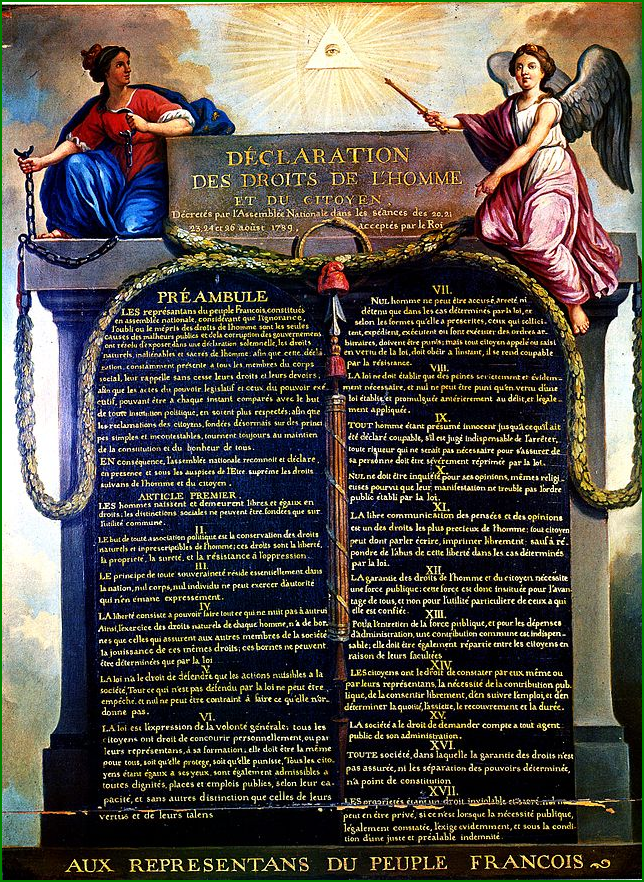 DÉCLARATION
DES DROITS DE L'HOMME
ET DU CITOYEN,
Décretés par l'Assemblée Nationale dans les séances des 20.21
23.24 et 26 aoûst 1789, acceptés par le Roi
PRÉAMBULE
LES représentans du peuple François, constitués
en assemblée nationale, considérant que l'ignorance,
l'oubli ou le mépris des droits de l'homme sont les seules
causes des malheurs publics et de la corruption des gouvernemens
ont résolu d'exposer dans une déclaration solemnelle, les droits
naturels, inaliénables et sacrés de l'homme: afin que cette décla-
ration, constamment présente a tous les membres du corps
social, leur rappelle sans cesse leurs droits et leurs devoirs;
afin que les actes du pouvoir législatif et ceux du pouvoir exé-
cutif, pouvant être à chaque instant comparés avec le but
de toute institution politique, en soient plus respectés; afin que
les réclamations des citoyens, fondées désormais sur des princi-
pes simples et incontestables, tournent toujours au maintien
de la constitution et du bonheur de tous.
EN conséquence, l'assemblée nationale reconnoit et déclare,
en présence et sous les auspices de l'Etre suprême les droits
suivans de l'homme et du citoyen.
ARTICLE PREMIER.
LES hommes naissent et demeurent libres et égaux en
droits. les distinctions sociales ne peuvent être fondées que sur
l'utilité commune.
II.
LE but de toute association politique est la conservation des droits
naturels et inprescriptibles de l'homme; ces droits sont la liberté,
la propriété, la sureté, et la résistance à l'oppression.
III.
LE principe de toute souveraineté réside essentiellement dans
la nation, nul corps, nul individu ne peut exercer d'autorité
qui n'en émane expressément.
IV.
LA liberté consiste a pouvoir faire tout ce qui ne nuit pas à autrui
Ainsi, l'exercice des droits naturels de chaque homme, n'a de bor-
nes que celles qui assurent aux autres membres de la société
la jouissance de ces mêmes droits; ces bornes ne peuvent
être déterminées que par la loi
V.
LA loi n'a le droit de défendre que les actions nuisibles a la
société. Tout ce qui n'est pas défendu par la loi ne peut être
empêché, et nul ne peut être contraint à faire ce qu'elle n'or-
donne pas.
VI.
LA loi est l'expression de la volonté générale; tous les
citoyens ont droit de concourir personnellement, ou par
leurs représentans, à sa formation; elle doit être la même
pour tous, soit qu'elle protege, soit qu'elle punisse, Tous les cito-
yens étant égaux a ses yeux, sont également admissibles a
toutes dignités, places et emplois publics, selon leur ca-
pacité, et sans autres distinction que celles de leurs
vertus et de leurs talens
VII.
NUL homme ne peut être accusé, arreté ni
détenu que dans les cas déterminés par la loi, et
selon les formes qu'elle a prescrites, ceux qui sollici-
tent, expédient, exécutent ou font exécuter des ordres ar-
bitraires, doivent être punis; mais tout citoyen appelé ou saisi
en vertu de la loi, doit obéir a l'instant, il se rend coupable
par la résistance.
VIII.
LA loi ne doit établir que des peines strictement et évidem-
ment nécessaire, et nul ne peut être puni qu'en vertu d'une
loi établie et promulguée antérierement au délit, et légale-
ment appliquée.
IX.
TOUT homme étant présumé innocent jusqu'a ce qu'il ait
été déclaré coupable, s'il est jugé indispensable de l'arrêter,
toute rigueur qui ne serait pas nécessaire pour s'assurer de
sa personne doit être sévèrement réprimée par la loi.
X.
NUL ne doit être inquiété pour ses opinions, mêmes religi-
euses pourvu que leur manifestation ne trouble pas l'ordre
public établi par la loi.
XI.
LA libre communication des pensées et des opinions
est un des droits les plus precieux de l'homme; tout citoyen
peut dont parler écrire, imprimer librement: sauf à ré-
pondre de l'abus de cette liberté dans les cas déterminés
par la loi.
XII.
LA garantie des droits de l'homme et du citoyen nécessite
une force publique: cette force est donc instituée pour l'avan-
tage de tous, et non pour l'utilité particuliere de ceux a qui
elle est confiée.
XIII.
POUR l'entretien de la force publique, et pour les dépenses
d'administration, une contribution commune est indispen-
sable; elle doit être également répartie entre les citoyens en
raison de leurs facultées
XIV.
LES citoyens ont le droit de constater par eux même ou
par leurs représentans, la nécessité de la contribution pub-
lique, de la consentir librement, d'en suivre l'emploi, et d'en
déterminer la quotité, l'assiette, le recouvrement et la durée.
XV.
LA société a le droit de demander compte a tout agent
public de son administration.
XVI.
TOUTE société, dans laquelle la garantie des droits n'est
pas assurée, ni les séparation des pouvoirs déterminée,
n'a point de constitution
XVII.
LES proprietés étant un droit inviolable et sacré, nul ne
peut en être privé, si ce n'est lorsque la nécessité publique,
légalement constatée, l'exige evidemment, et sous la condi-
tion d'une juste et préalable indemnité.
AUX REPRESENTANS DU PEUPLE FRANCOIS